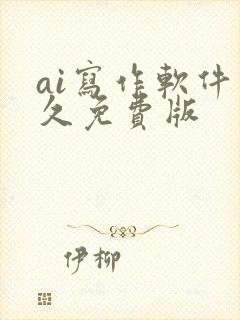 ai寫作軟件
久免費版
伊柳